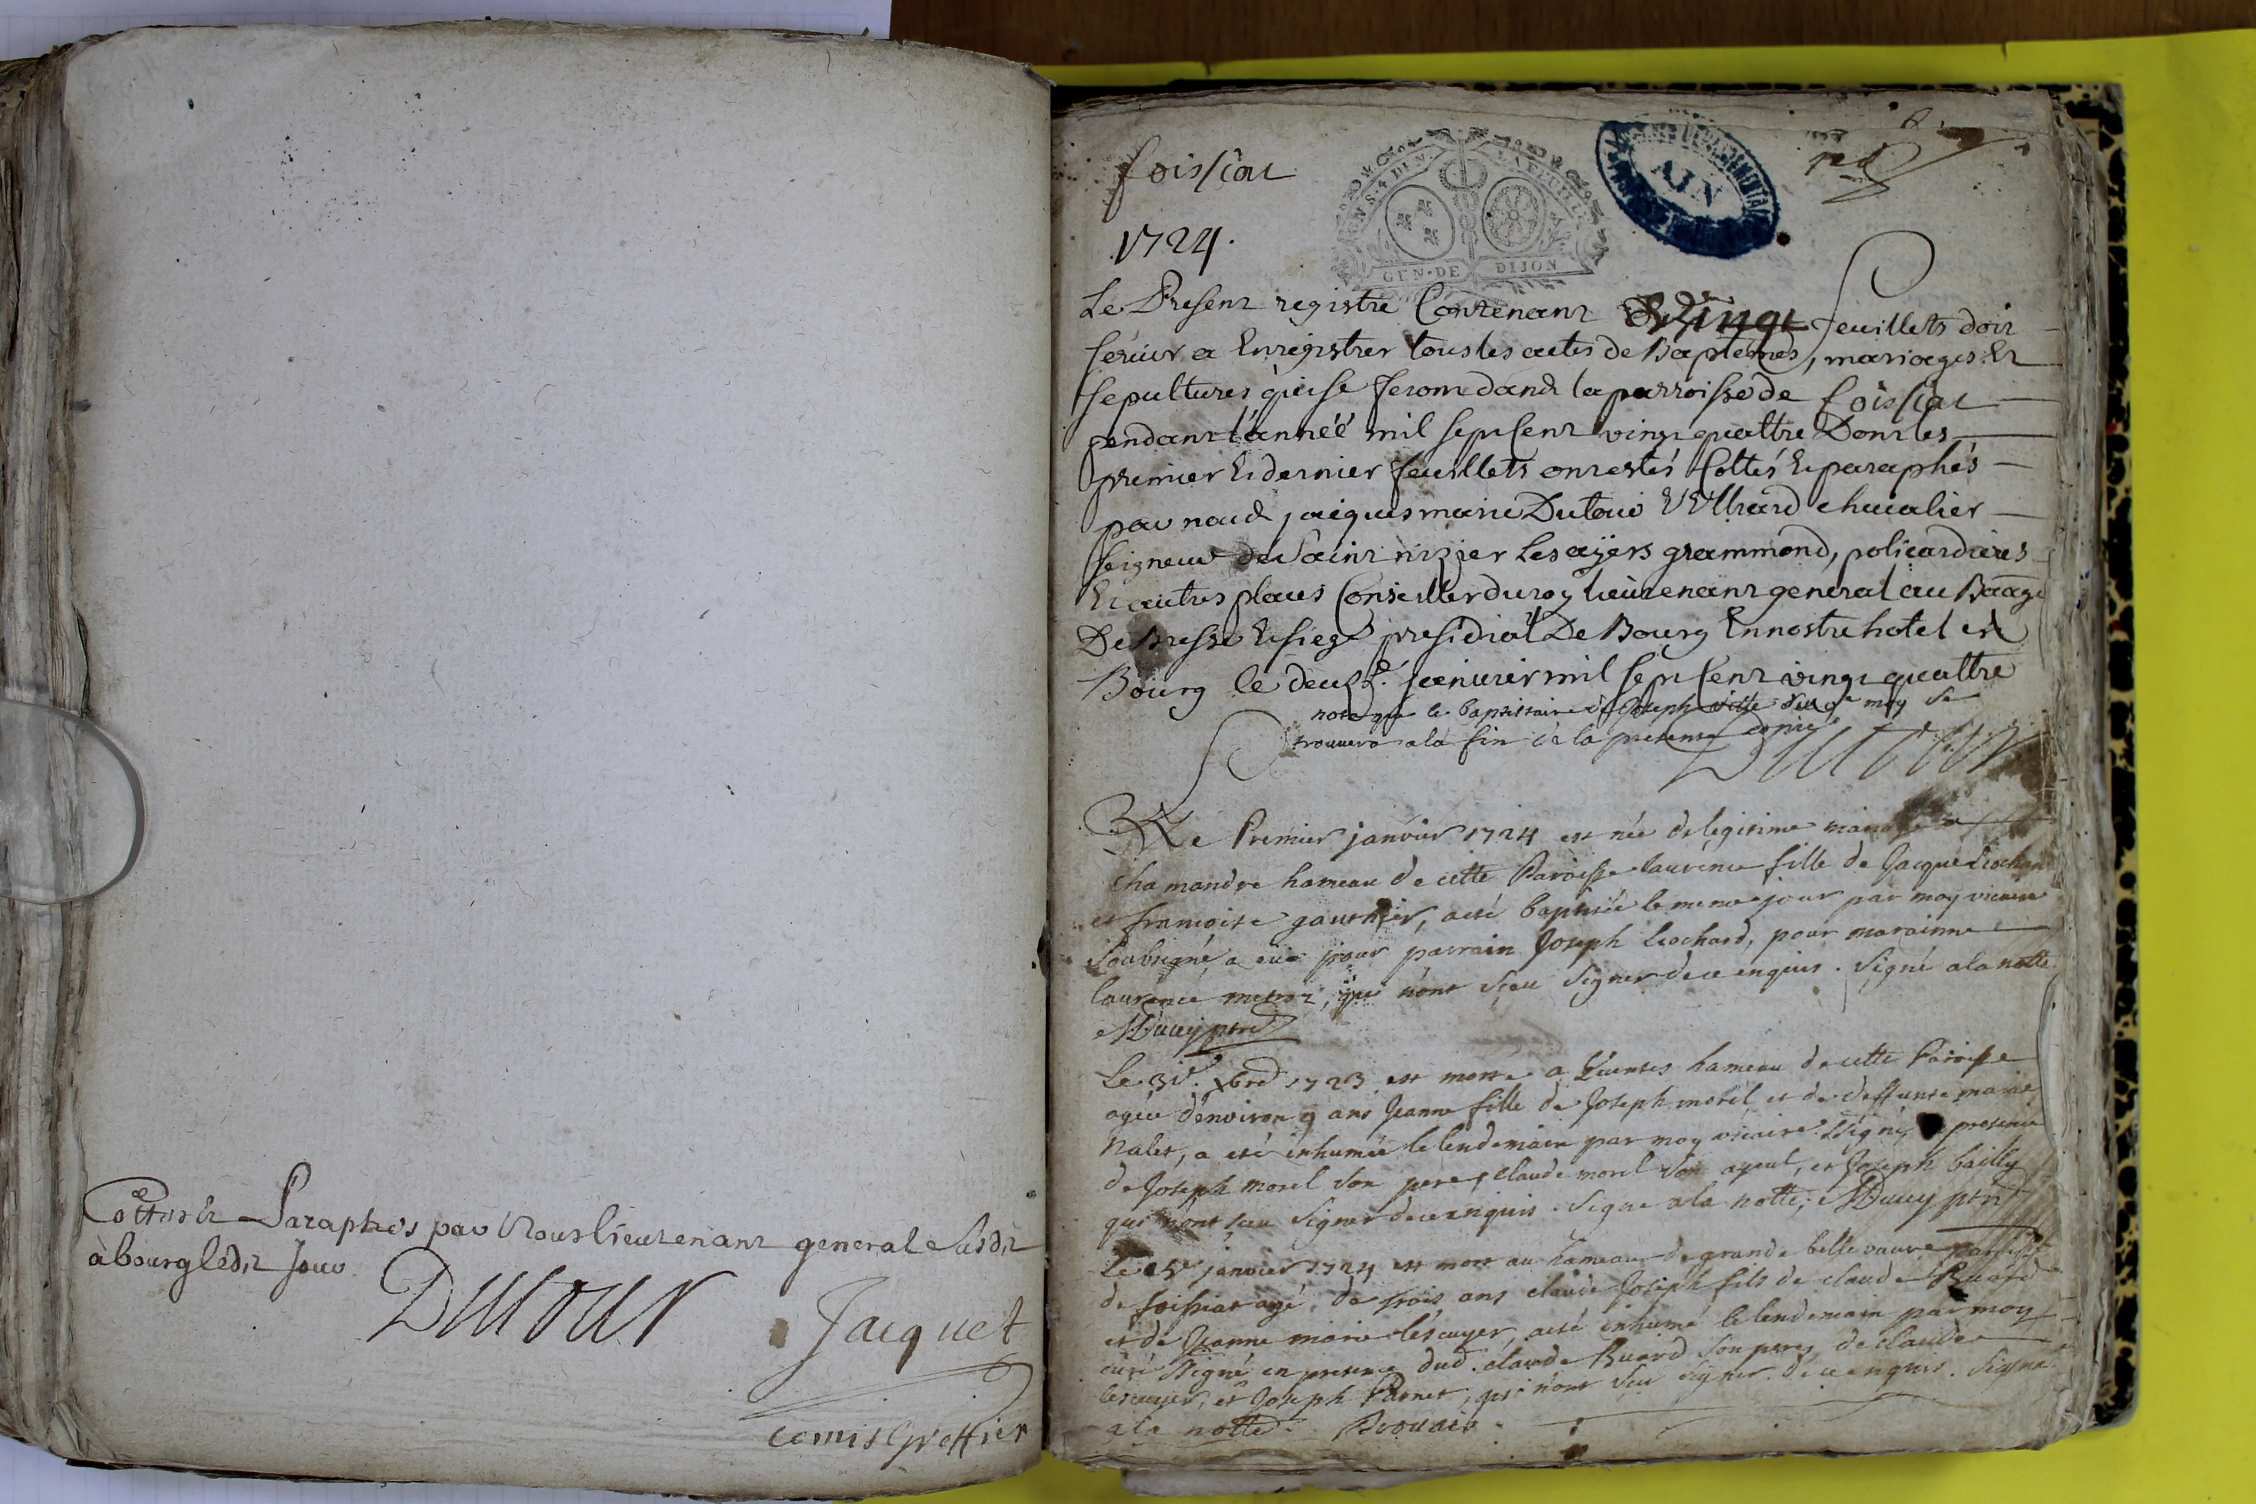 Cottes et Paraphés par Nous lieutenant general susdit
à bourg ledit Jour
Dutour
Jacquet
comis Greffier
foissiat
1724.
GEN. DE DIJON
AIN
Le Present registre Contenant Vingt feuillets doit
servir a Enregistrer tous les actes de Baptemes, mariages Et
sepultures qui se feront dans la parroisse de foissiat
pendant l'année mil sept Cent vingt quattre Dont les
premier Et dernier feuillets ont estés Cottés Et paraphés
par nous jacques marie Dutour Villiard chevalier
seigneur de Saint nizier Les ayers grammond,
Et autres places Conseiller du roy lieutenant general au Baage
De Bresse Et siege presidial De Bourg En nostre hotel a
Bourg le deux janvier mil sept Cent vingt quattre
note que le baptistaire de Joseph de may se
trouvera a la fin de la presente copie
Dutour
Le Premier janvier 1724 est née de legitime mariage a
chamandre hameau de cette Paroisse laurence fille de Jacque Leochard
et francoise gauthier, a eté baptisée le meme jour par moy vicaire
soubsigné, a eue pour parrain Joseph Leochard, pour marainne
laurence, qui n'ont sceu signer de ce enquis. signé a la notte
MDucuy ptre
Le 31e. xbre 1723 est morte a hameau de cette Paroisse
agée d'environ 9 ans Jeanne fille de Joseph morel et de deffunte marie
Nalet, a eté inhumée le lendemain par moy vicaire ssigné presence
de Joseph morel son pere, Claude morel son ayeul, et Joseph bailly
qui n'ont sceu signer de ce enquis. signe a la notte; MDucuy ptre
Le 5e janvier 1724 est mort au hameau de grande bellevauvre paroisse
de foissiat agé de trois ans claude Joseph fils de claude Buard
et de Jeanne marie lescuyer, a eté inhumé le lendemain par moy
curé ssigné en presence dud. claude Buard son pere, de claude
lescuyer, et Joseph Pernet, qui n'ont sceu signer de ce enquis. signé
a la notte.